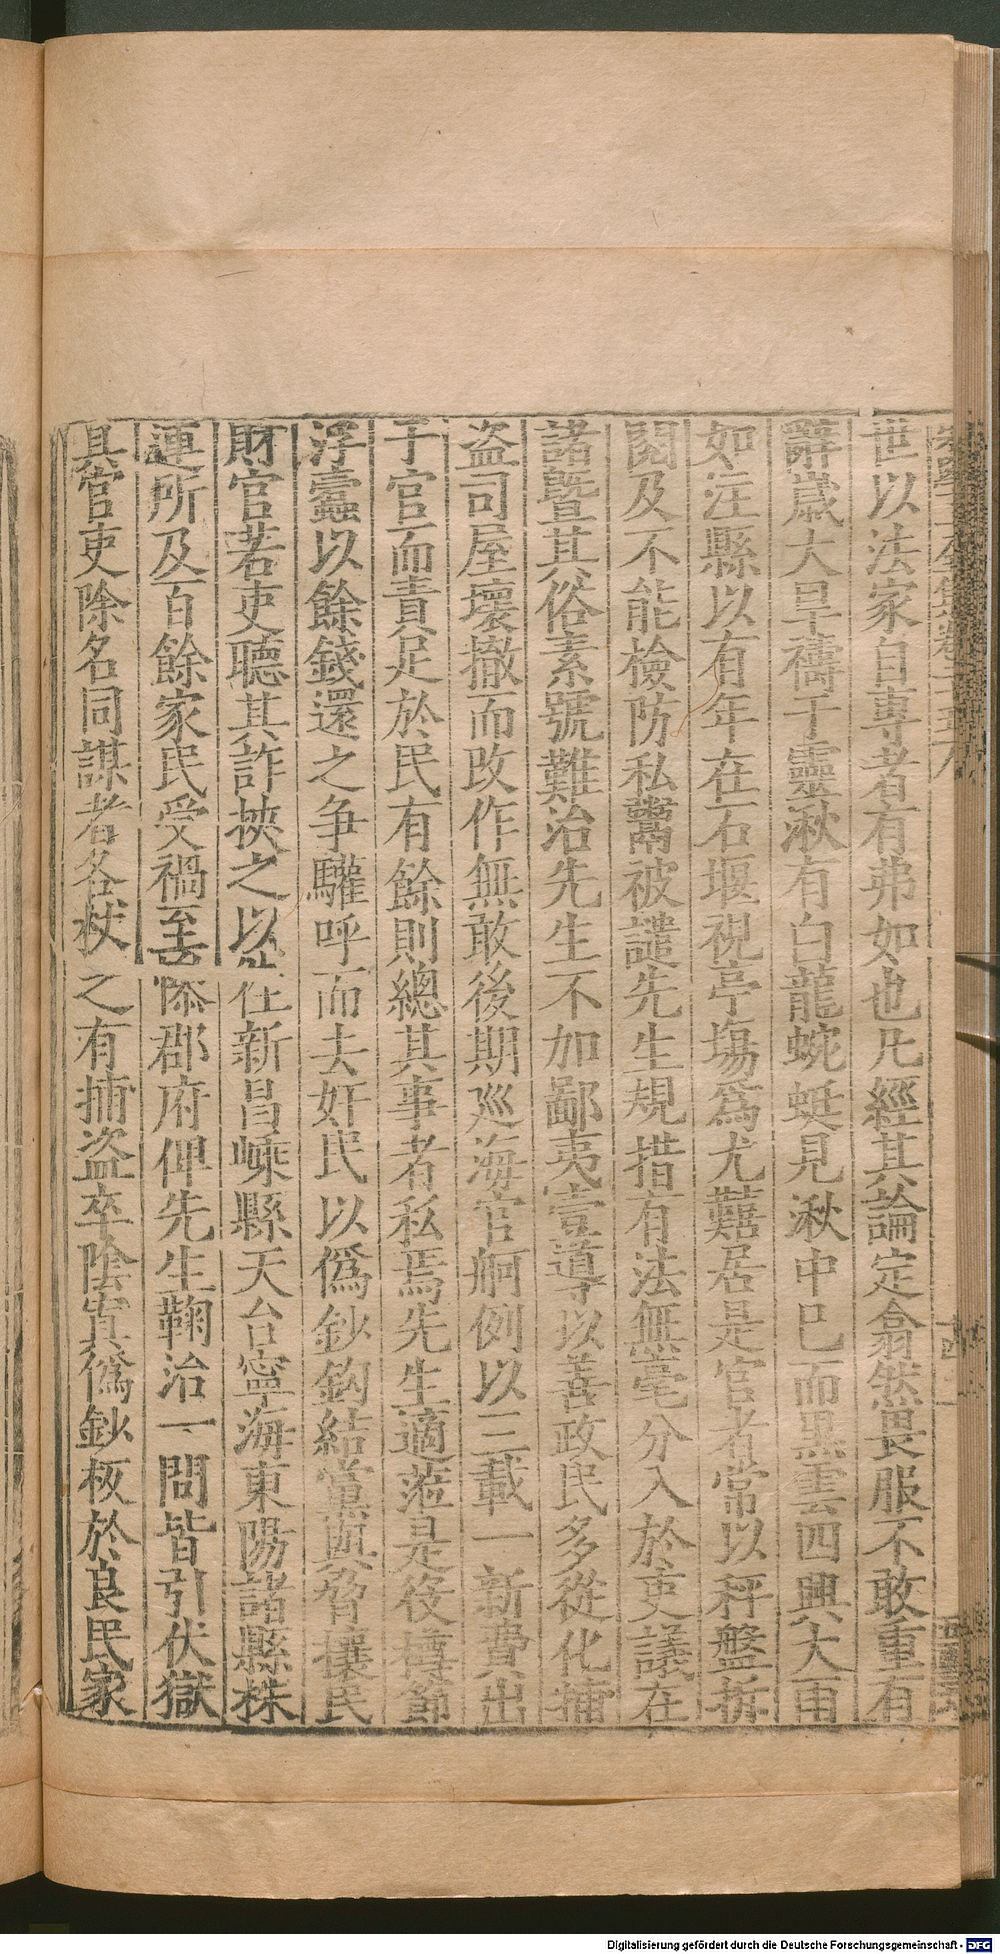 世以法家自專者有弗如也凡經其論定翕然畏服不敢重有
辭歲大旱禱于靈湫有白龍蜿蜒見湫中巳而黑雲四興大雨
如注縣以有年在石堰視亭塲爲尤難居是官者常以秤盤折
閱及不能檢防私鬻被譴先生規措有法無毫分入於吏議在
諸曁其俗素號難治先生不加鄙夷壹導以善政民多從化捕
盗司屋壞撤而改作無敢後期巡海官舸例以三載一新費出
于官而責足於民有餘則總其事者私焉先生適蒞是役撙節
浮蠹以餘錢還之争驩呼而去奸民以僞鈔鈎結黨與脅攘民
財官若吏聽其詐挾之以往新昌嵊縣天台寧海東陽諸縣株
連所及百餘家民受禍至惨郡府俾先生鞠治一問皆引伏獄
具官吏除名同謀者各杖之有捕盗卒陰寘僞鈔板於良民家
Digitalisierung gefördert durch die Deutsche Forschungsgemeinschaft - DFG